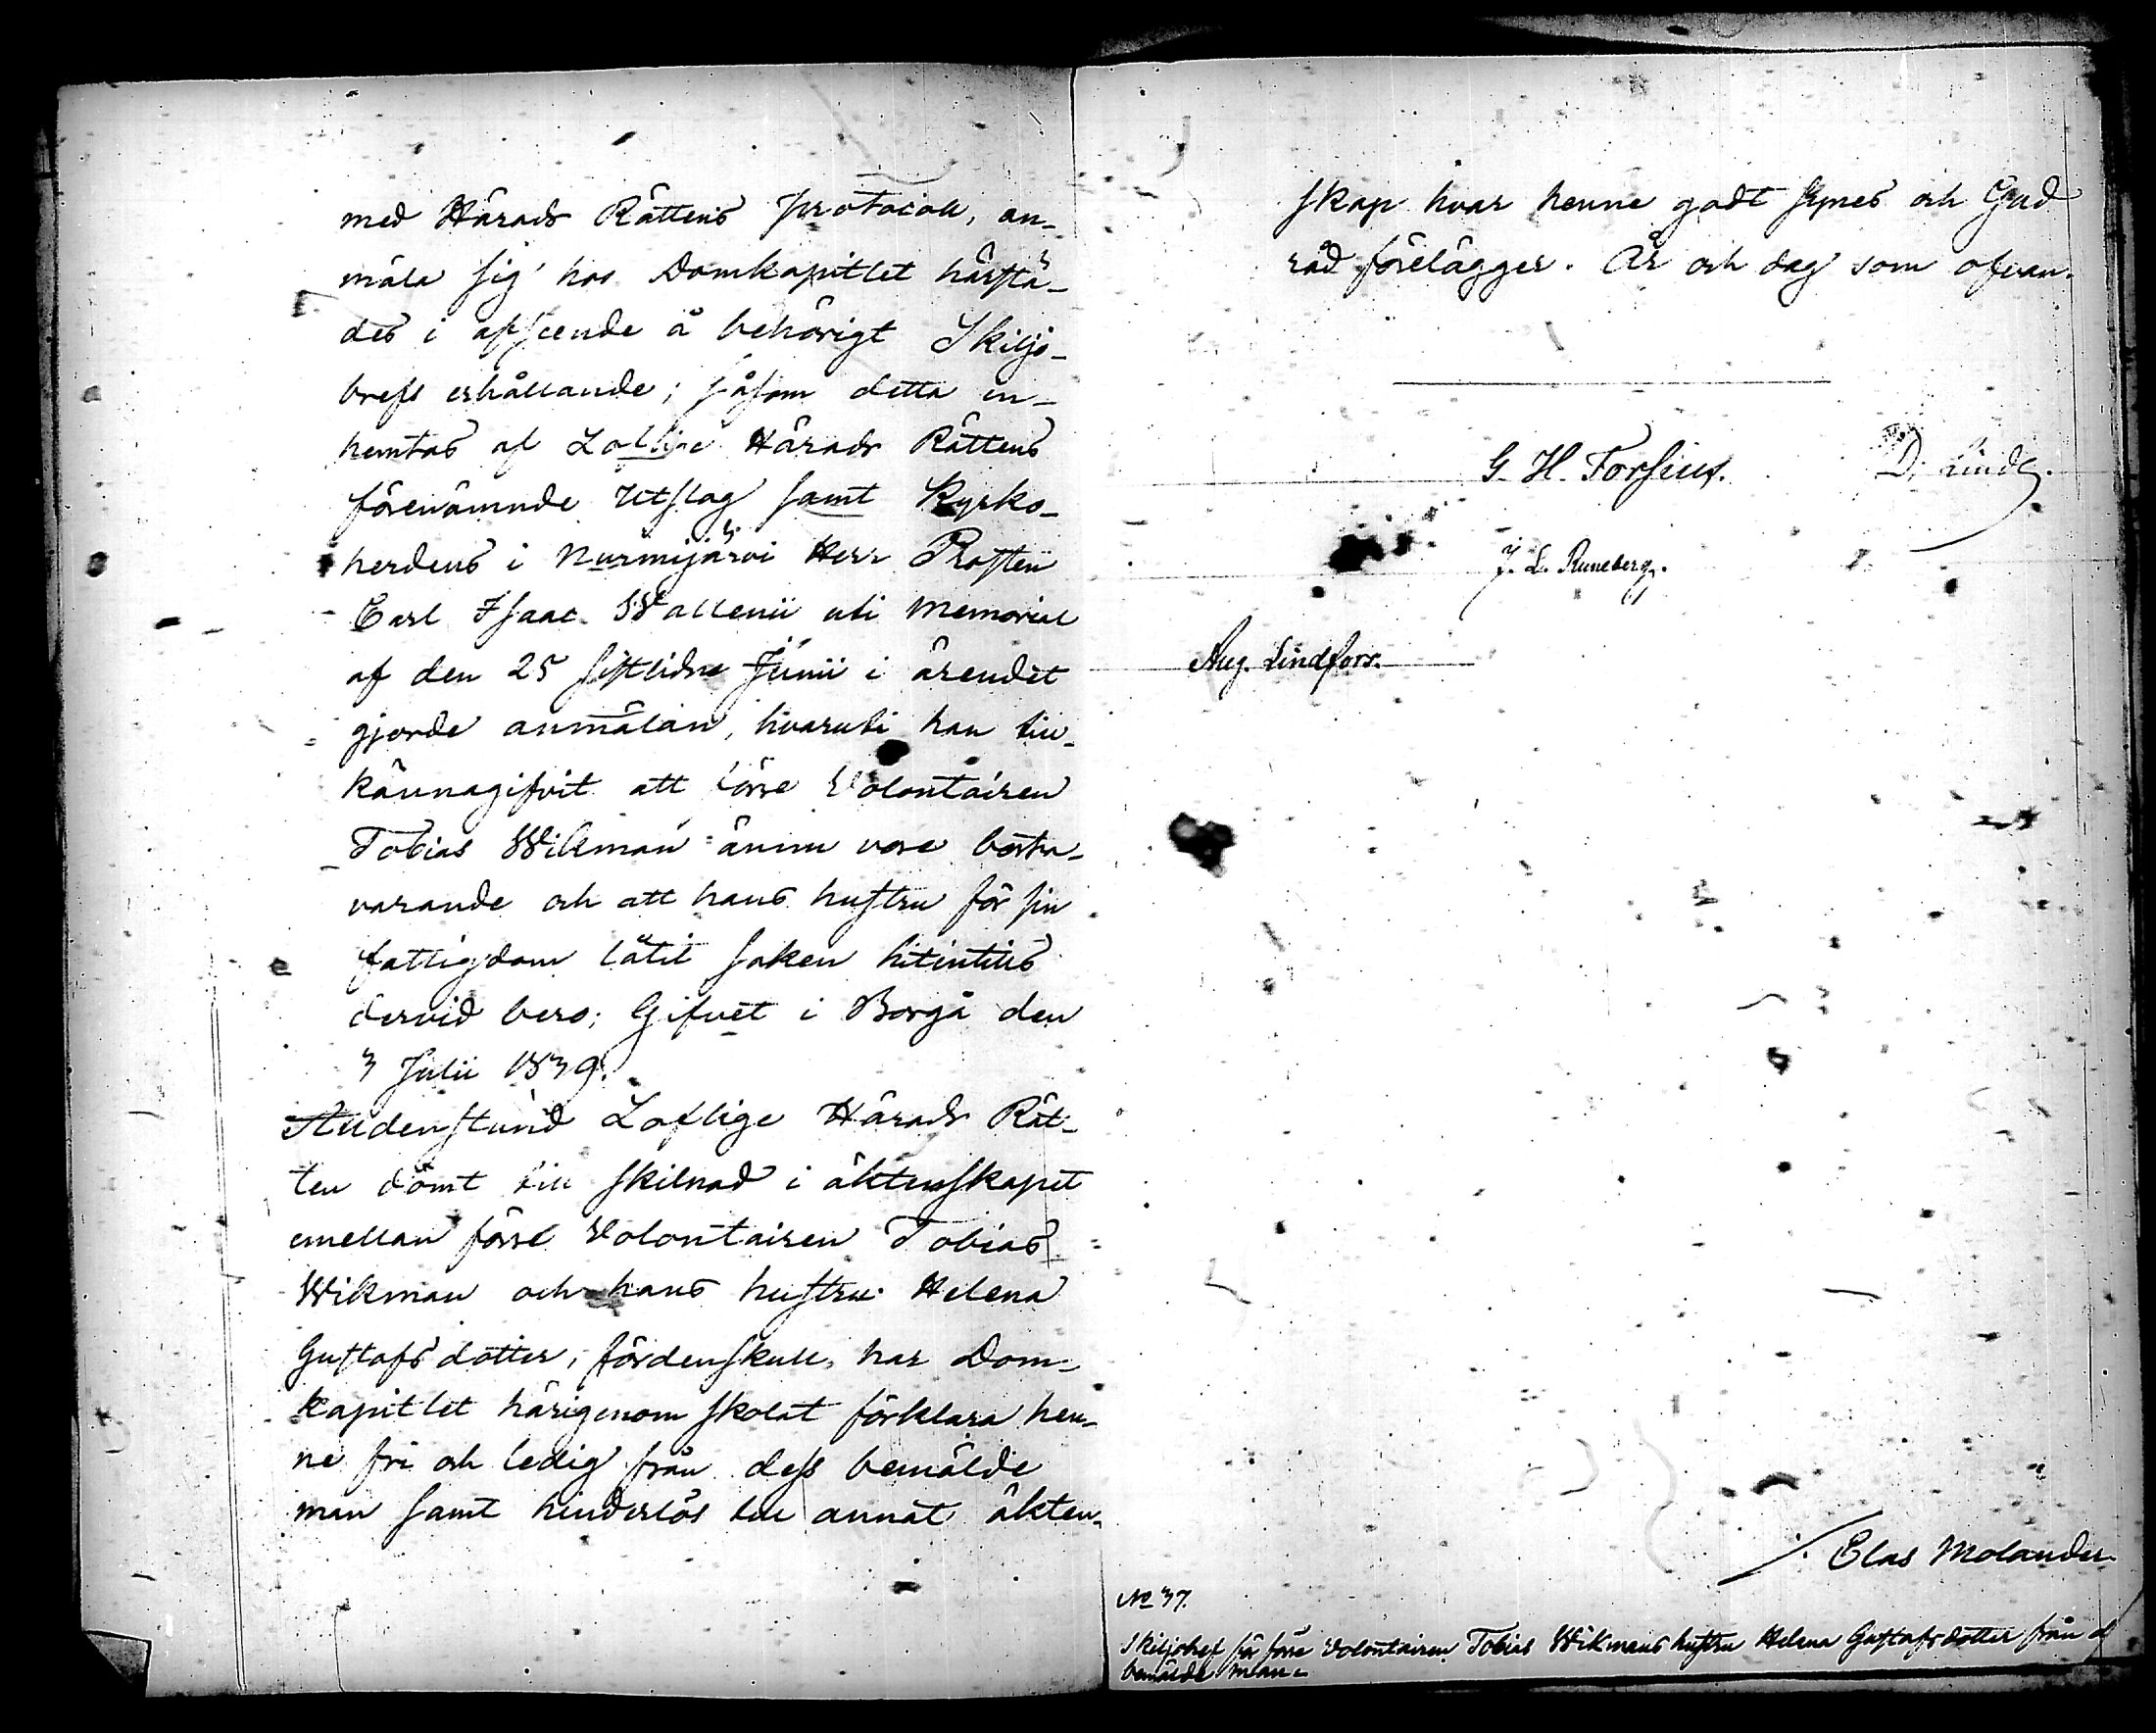 med Härads Rättens Protocoll, an-
mäla sig hos Domkapitlet härstä-
des i afseende å behörigt Skiljo-
brefs erhållande; såsom detta in-
hemtas af Loflige Härads Rättens
förenämnde Utslag samt Kyrko-
herdens i Nurmijärvi Herr Prosten
Carl Isaac Wallenii uti Memorial
af den 25 sistlidne Junii i ärendet
gjorde anmälan, hvaruti han till-
kännagifvit att förre Volontairen
Tobias Wikman ännu vore borto-
varande och att hans hustru för sin
fattigdom låtit saken hitintills
dervid bero; Gifvet i Borgå den
3 Julii 1839.
Alldenstund Loflige Härads Rät-
ten dömt till skilnad i äktenskapet
emellan förre Volontairen Tobias
Wikman och hans hustru Helena
Gustafsdotter, fördenskull har Dom-
kapitlet härigenom skolat förklara hen-
ne fri och ledig från dess bemälde
man samt hinderlös till annat äkten-
skap hvar henne godt synes och Gud
råd förelägger. År och dag som ofvan.
G. H. Forsius. D. Lindh.
J. L. Runeberg.
Aug. Lindfors.
/. Clas Molander
No 37.
Skiljobref för förre Volontairen Tobias Wikmans hustru Helena Gustafsdotter från
bemälde man.